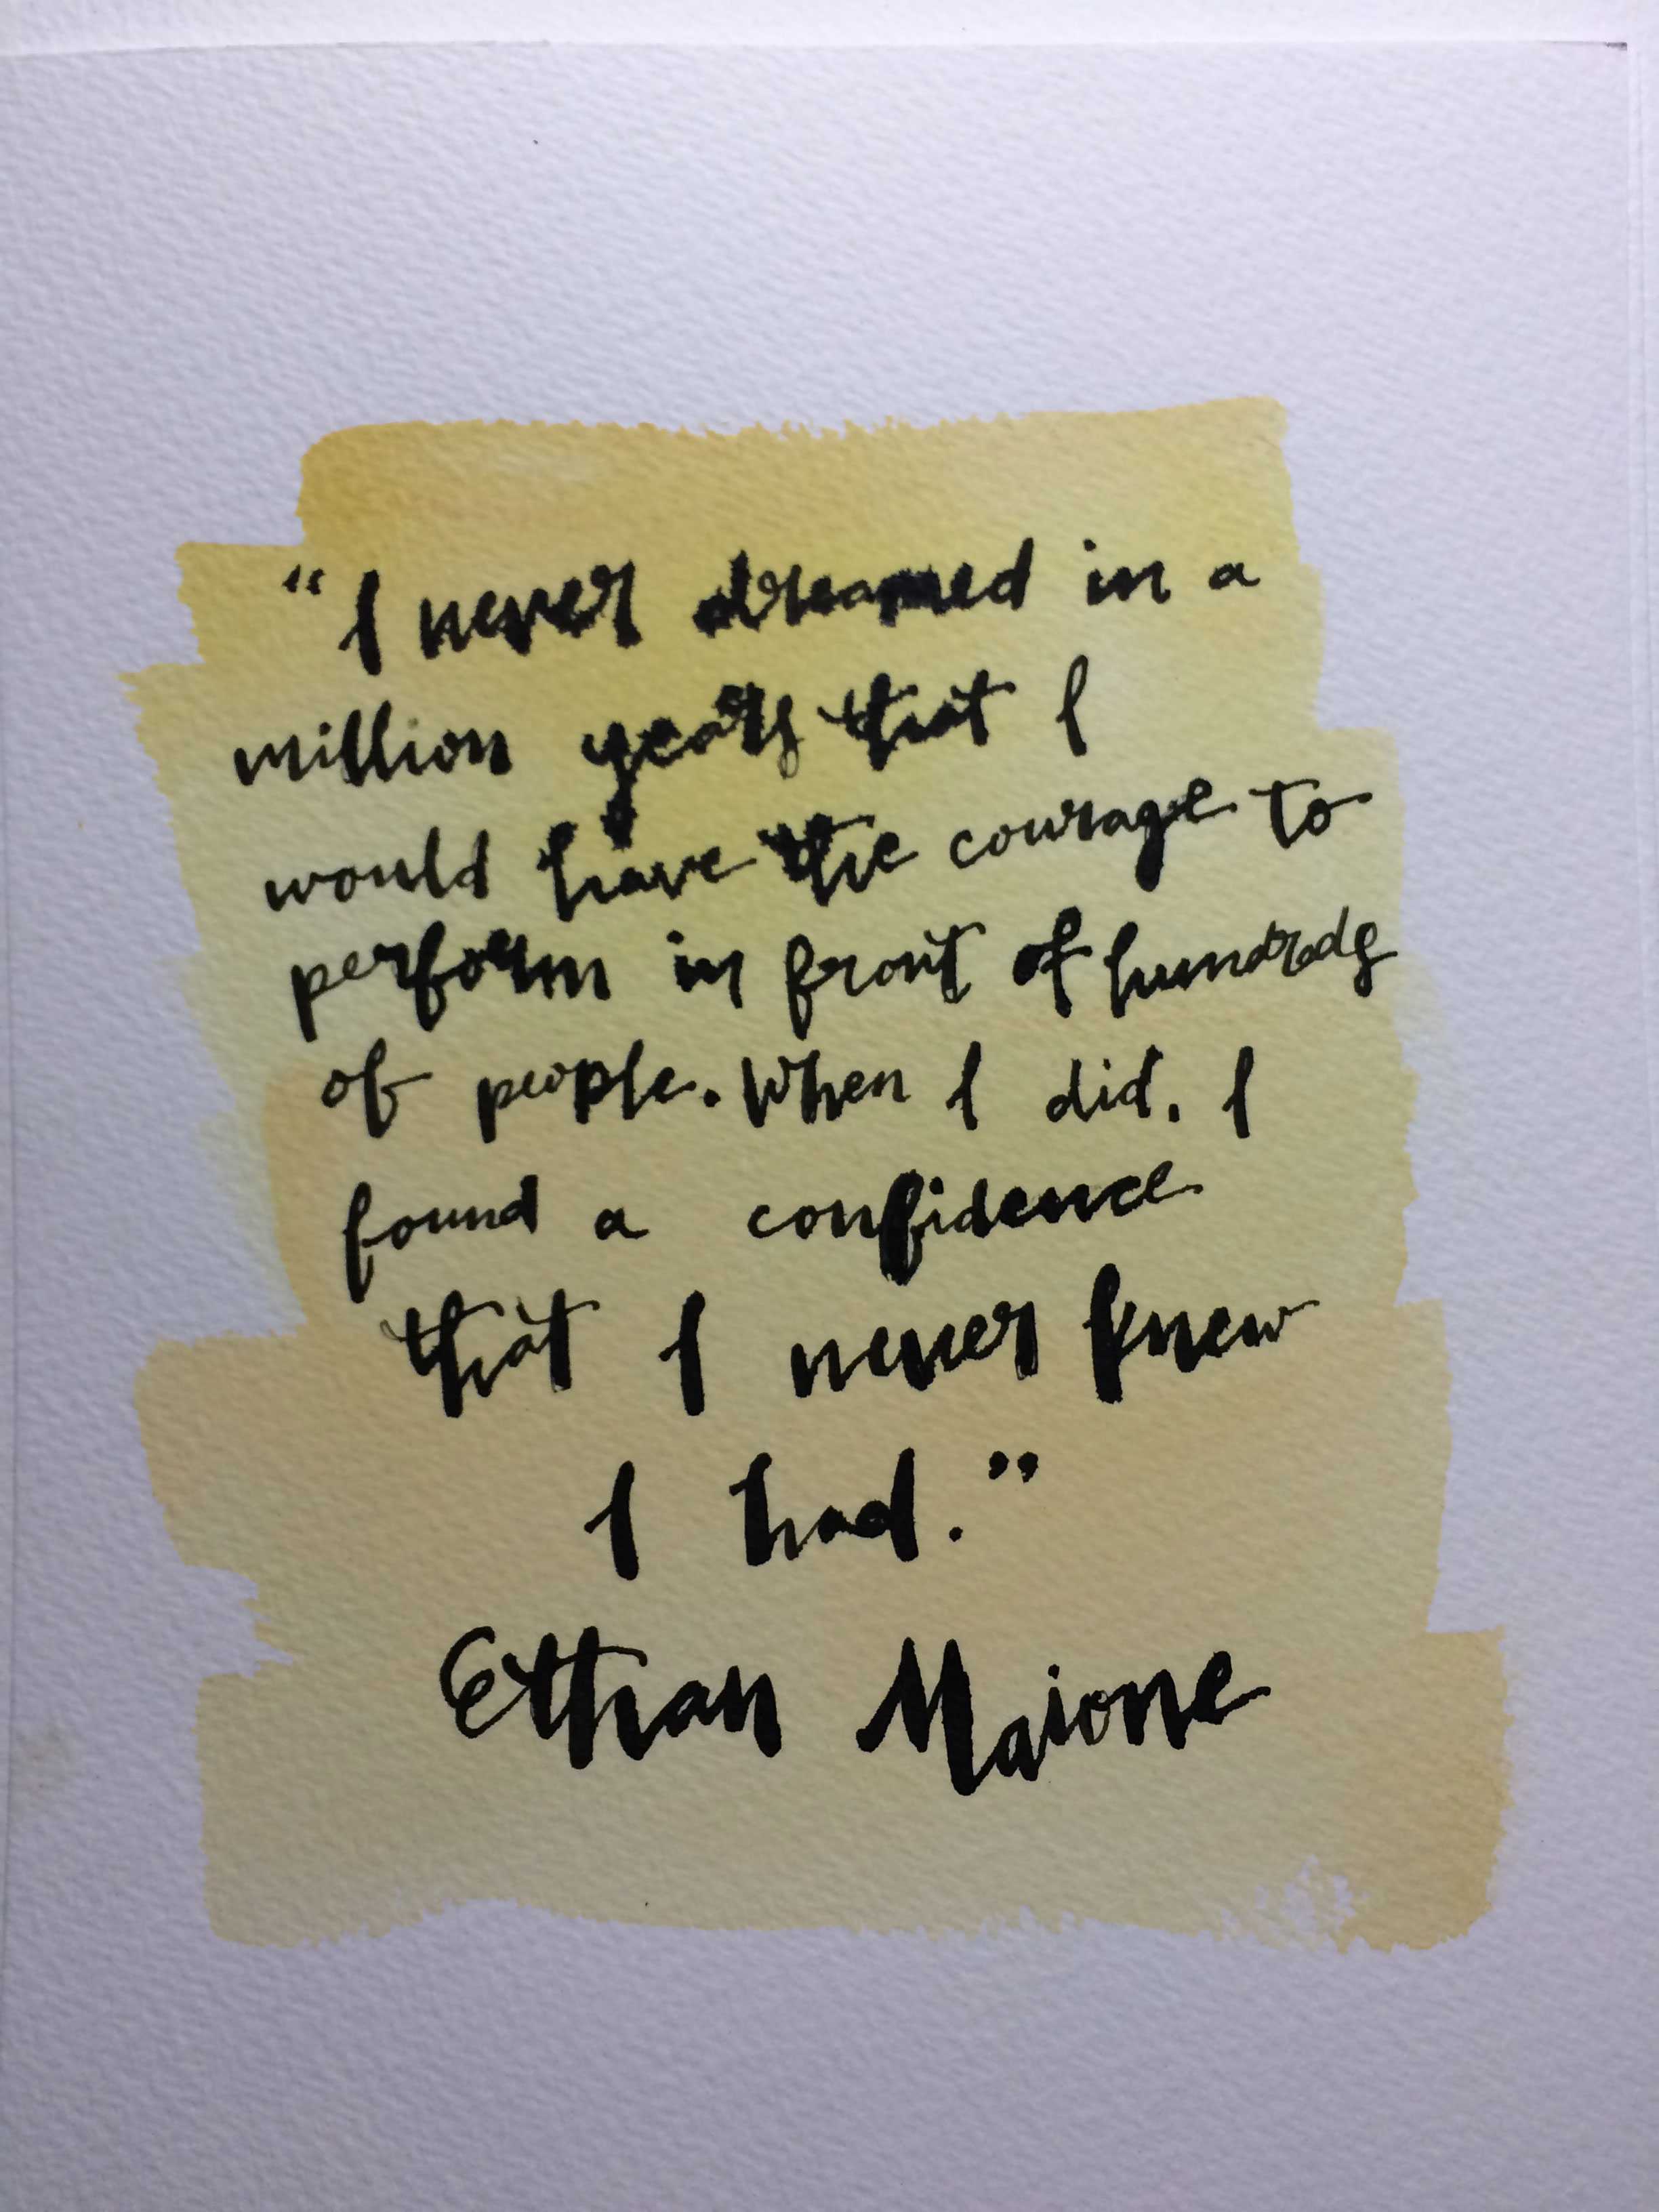 “I never dreamed in a
million years that I
would have the courage to
perform in front of hundreds
of people. When I did, I
found a confidence
that I never knew
I had.”
Ethan Maione